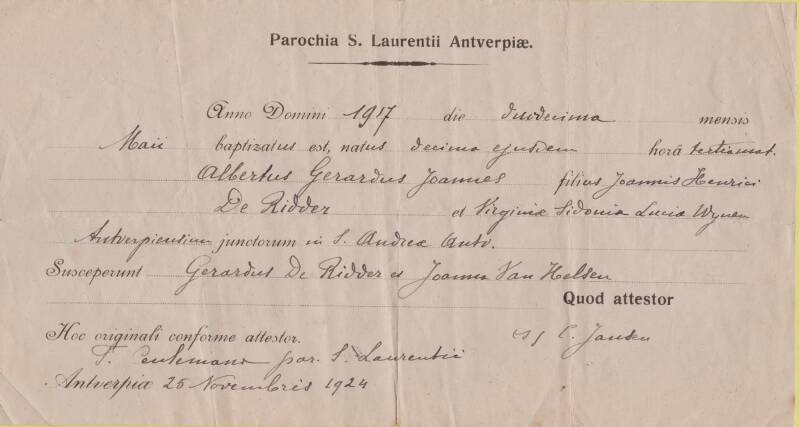 Parochia S. Laurentii Antverpiæ.
Anno Domini 1917 die duodecima mensis
Maii baptizatus est, natus decima ejusdem horâ tertia mat.
Albertus Gerardus Joannes filius Joannis Henrici
De Ridder et Virginiæ Sidonia Lucia Wynen
Antverpiensium junctorum in S. Andrea Antv.
Susceperunt Gerardus De Ridder et Joanna Van Helsen
Quod attestor
Hoc originali conforme attestor. (s) C. Jansen
par. S. Laurentii
Antverpiæ 25 Novembris 1924